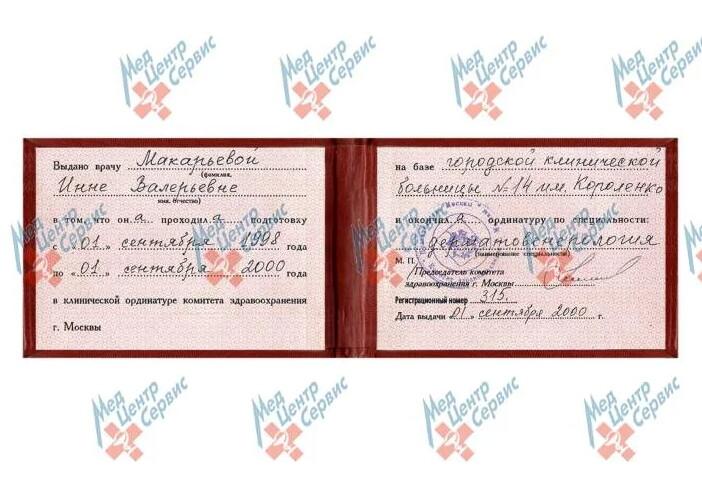 Мед Центр Сервис
Мед Центр Сервис
Мед Центр Сервис
Мед Центр Сервис
Выдано врачу Макарьевой
(фамилия,
Инне Валерьевне
имя, отчество)
в том, что он а проходил а подготовку
с «01» сентября 1998 года
по «01» сентября 2000 года
в клинической ординатуре комитета здравоохранения
г. Москвы
на базе городской клинической
больницы №14 им. Короленко
и окончил а ординатуру по специальности:
дерматовенерология
(наименование специальности)
М. П.
Председатель комитета
здравоохранения г. Москвы
Регистрационный номер 315
Дата выдачи «01» сентября 2000 г.
Мед Центр Сервис
Мед Центр Сервис
Мед Центр Сервис
Мед Центр Сервис